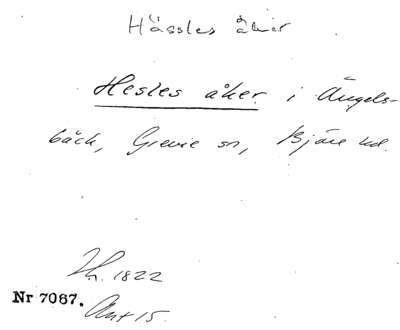 Hässles åker
Hesles åker i Ängels-
bäck, Grevie sn, Bjäre hd.
Lh. 1822
Nr 7067.
Akt 15.